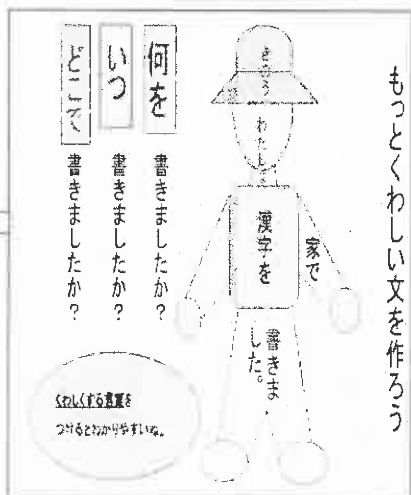 もっとくわしい文を作ろう
きのう
わたしは
家で
漢字を
書きま
した。
何を 書きましたか？
いつ 書きましたか？
どこで 書きましたか？
くわしくする言葉を
つけるとわかりやすいね。